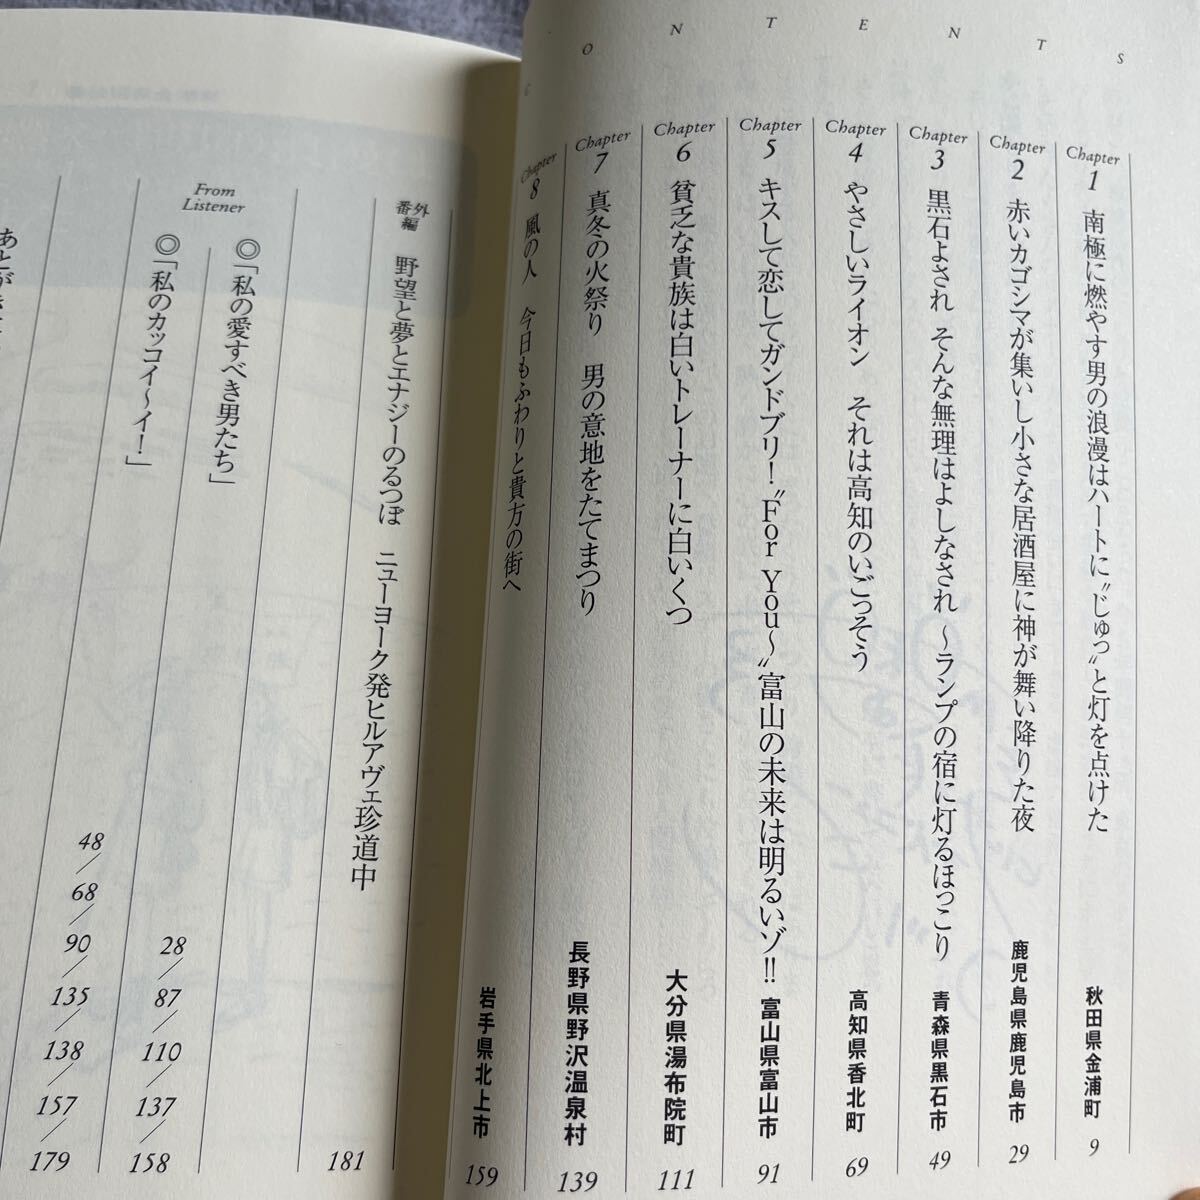 CONTENTS
Chapter 1 南極に燃やす男の浪漫はハートに〝じゅっ〟と灯を点けた 秋田県金浦町 9
Chapter 2 赤いカゴシマが集いし小さな居酒屋に神が舞い降りた夜 鹿児島県鹿児島市 29
Chapter 3 黒石よされ そんな無理はよしなされ 〜ランプの宿に灯るほっこり 青森県黒石市 49
Chapter 4 やさしいライオン それは高知のいごっそう 高知県香北町 69
Chapter 5 キスして恋してガンドブリ！〝For You〜〟富山の未来は明るいゾ!! 富山県富山市 91
Chapter 6 貧乏な貴族は白いトレーナーに白いくつ 大分県湯布院町 111
Chapter 7 真冬の火祭り 男の意地をたてまつり 長野県野沢温泉村 139
Chapter 8 風の人 今日もふわりと貴方の街へ 岩手県北上市 159
番外編 野望と夢とエナジーのるつぼ ニューヨーク発ヒルアヴェ珍道中 181
From Listener
◎「私の愛すべき男たち」 28／87／110／137／158
◎「私のカッコイ〜イ！」 48／68／90／135／138／157／179
あとがき